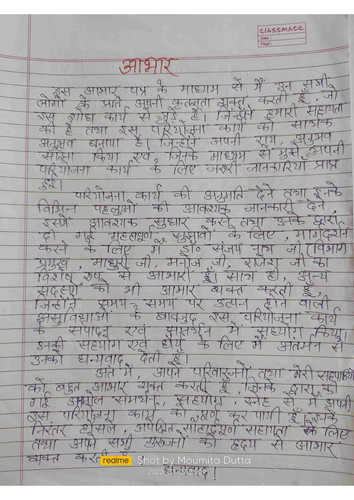 CLASSMATE
Date :
Page :
आभार
इस आभार पत्र के माध्यम से मैं उन सभी
लोगों के प्रति अपनी कृतज्ञता व्यक्त करती हूँ, जो
इस शोध कार्य से जुड़े हैं। जिन्होंने हमारी सहायता
की है तथा इस परियोजना कार्य को सार्थक
अनुभव बनाया है। जिन्होंने अपनी राय, अनुभव
साँझा किया एवं जिनके माध्यम से मुझे अपनी
परियोजना कार्य के लिए जरुरी जानकारियाँ प्राप्त
हुई।
परियोजना कार्य की अनुमति देने तथा इनके
विभिन्न पहलुओं की आवश्यक जानकारी देने,
इसमें आवश्यक सुधार करने तथा उनके द्वारा
दी गई महत्वपूर्ण सुझावों के लिए, मार्गदर्शन
करने के लिए मैं डॉ० संजय जी (विभाग
प्रमुख, माधुरी जी, मनोज जी, राजेश जी का
विशेष रूप से आभारी हूँ। साथ ही, अन्य
सदस्यों को भी आभार व्यक्त करती हूँ,
जिन्होंने समय समय पर उत्पन्न होने वाली
असुविधाओं के बावजूद इस परियोजना कार्य
के संपादन एवं में सहयोग किया।
उनकी सहयोग एवं धैर्य के लिए मैं अंतर्मन से
उनको धन्यवाद देती हूँ।
अंत में, अपने परिवारजनों तथा मेरी
को बहुत आभार व्यक्त करती हूँ, जिनके द्वारा की
गई समर्थन, सहयोग, स्नेह से मैं अपनी
इस परियोजना कार्य को पूर्ण कर पायी हूँ।
निरंतर प्रोत्साहन, अपेक्षित सहायता के लिए
तथा अपने सभी गुरुजनों को हृदय से आभार
व्यक्त करती हूँ।
धन्यवाद!
realme Shot by Moumita Dutta